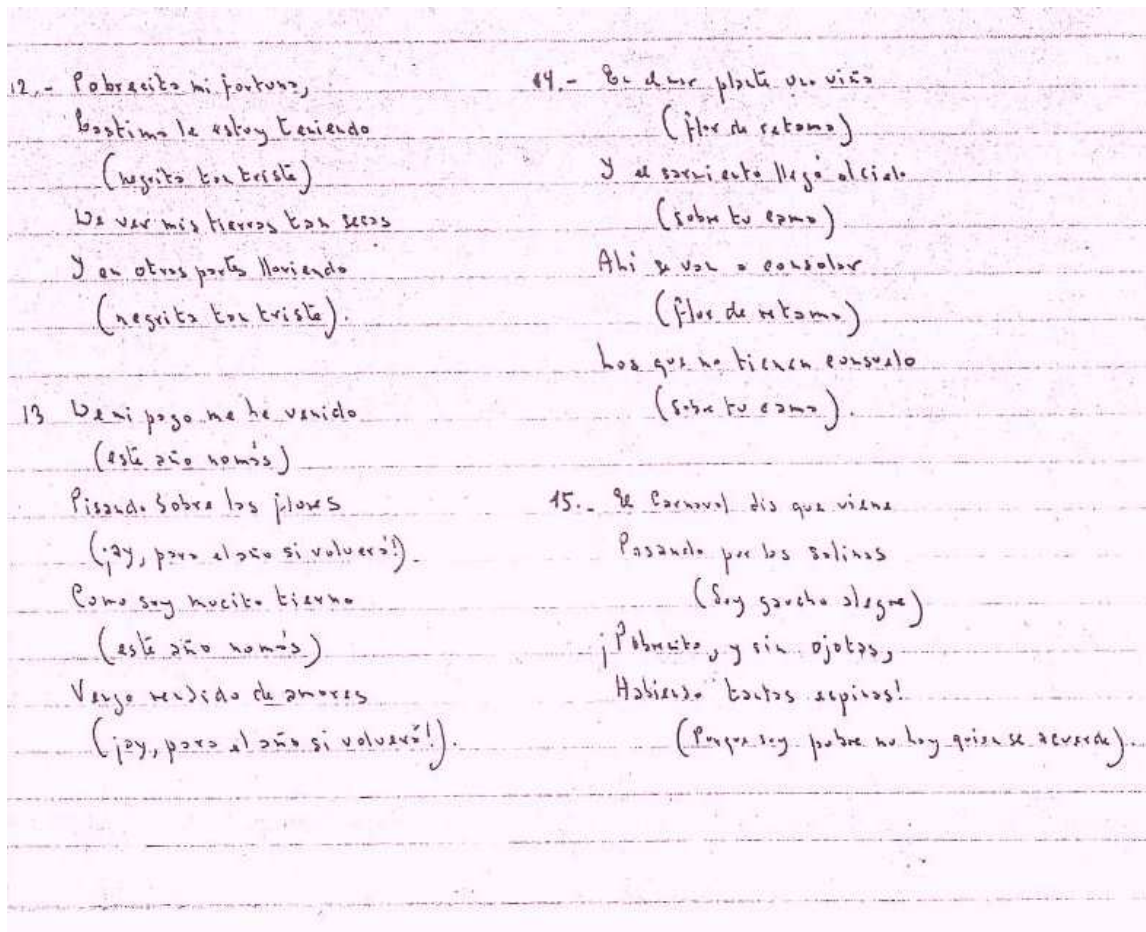 12.- Pobrecita mi fortuna,
Lastima le estoy teniendo
(negrita tan triste)
De ver mis tierras tan secas
Y en otras partes lloviendo
(negrita tan triste).
13 De mi pago me he venido
(este año nomás)
Pisando sobre las flores
(¡ay, para el año si volverá!).
Como soy mocito tierno
(este año nomás)
Vengo rendido de amores
(¡ay, para el año si volverá!).
14.- En el mar planté una viña
(flor de retama)
Y el sarmiento llegó al cielo
(sobre tu cama)
Ahi se van a consolar
(flor de retama)
Los que no tienen consuelo
(sobre tu cama).
15.- El Carnaval dis que viene
Pasando por las salinas
(Soy gaucho alegre)
¡Pobrecito, y sin ojotas,
Habiendo tantas espinas!
(Porque soy pobre no hay quien se acuerde).